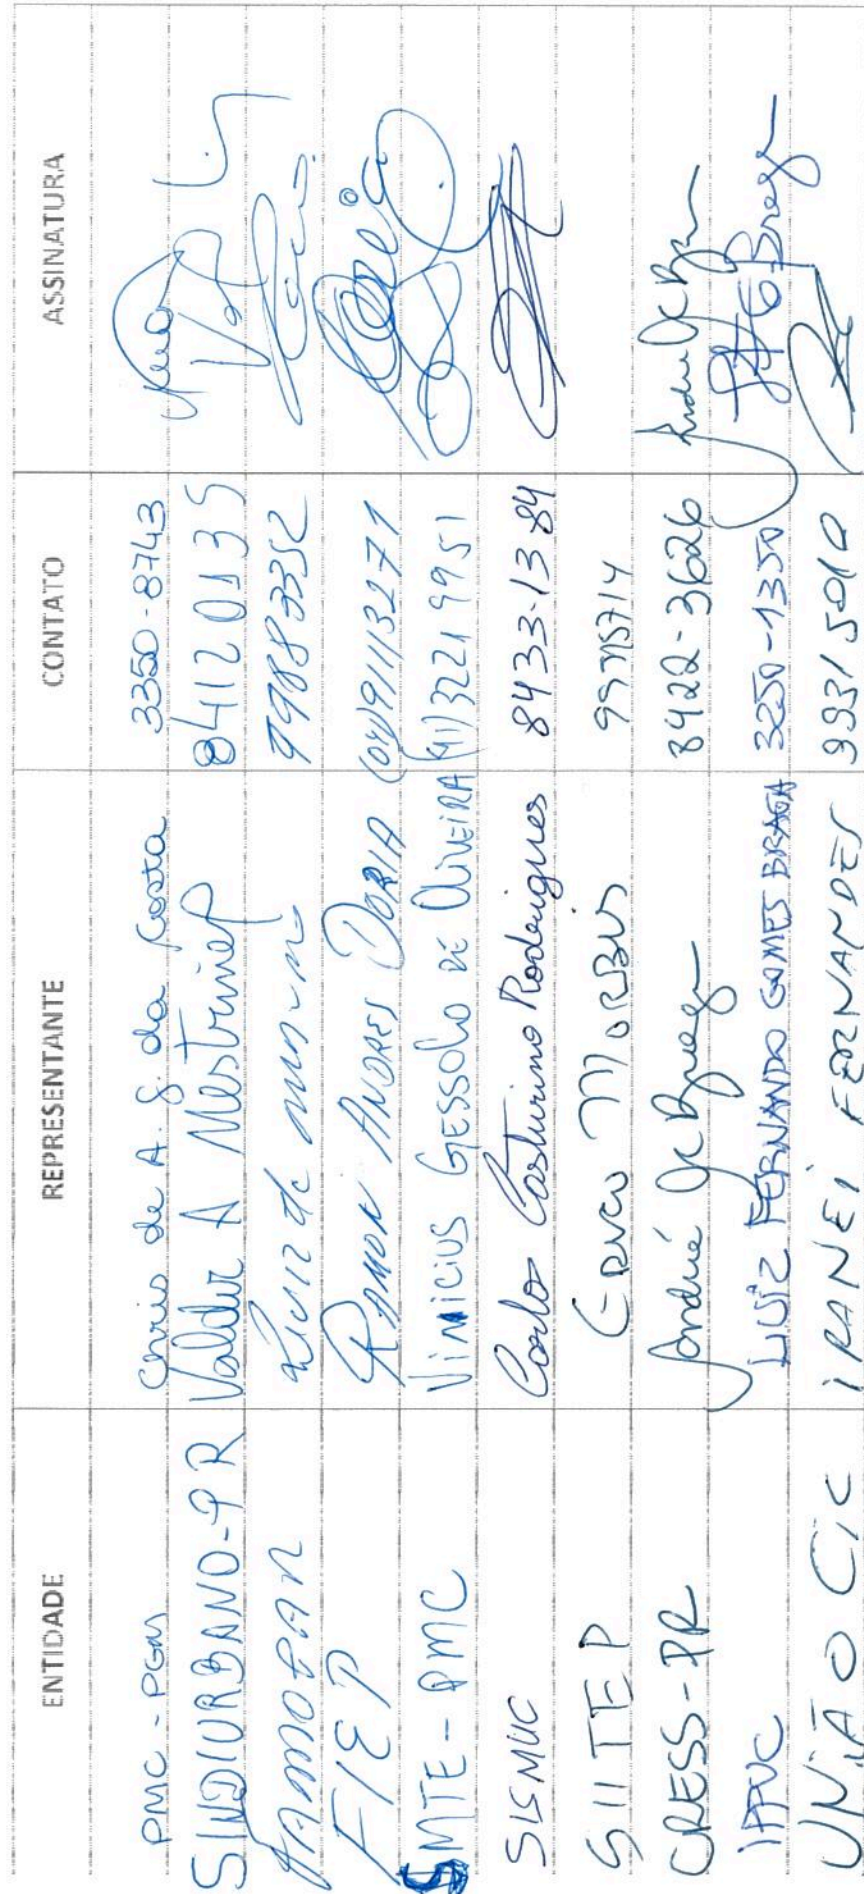 ENTIDADE REPRESENTANTE CONTATO ASSINATURA
PMC - PGM Chris de A. G. da Costa 3350-8743
SINDIURBANO-PR Valdir A Mestriner 84120135
FAMOPAR Luiz de 99883352
FIEP RAMON ANDRES DORIA (041)91113271
SMTE - PMC VINICIUS GESSOLO DE OLIVEIRA (41)3221 9951
SISMUC Carlo Casturino Rodrigues 8433-1384
SIITEP MORBIS
CRESS-PR André 8422-3626
IPPUC LUIZ FERNANDO GOMES BRAGA 3250-1350
UNIÃO CIC IRANEI FERNANDES 9931 5010